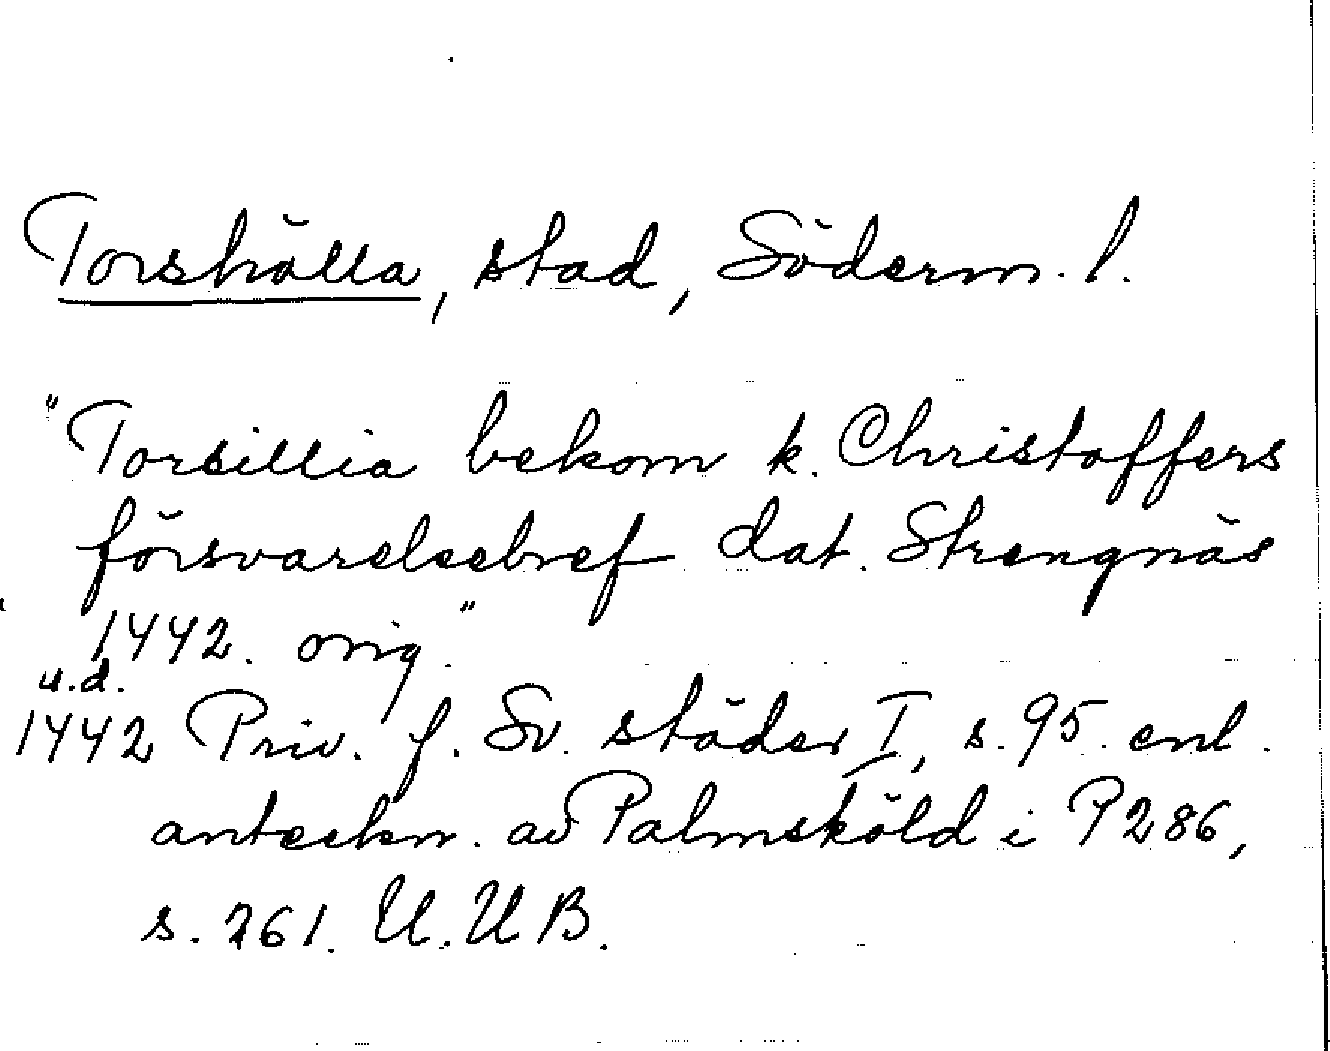 Torshälla, stad, Söderm. l.
"Torsillia bekom k. Christoffers
försvarelsebref dat. Strengnäs
1442. orig."
u.d.
1442 Priv. f. Sv. städer I, s. 95 enl.
anteckn. av Palmsköld i P 286,
s. 261. U.U B.